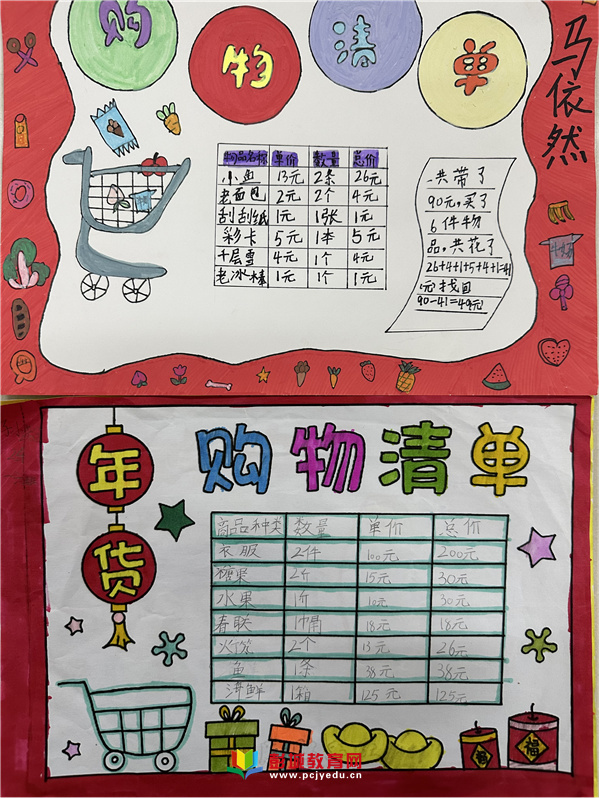 购物清单
马依然
物品名称 单价 数量 总价
小鱼 13元 2条 26元
老面包 2元 2个 4元
刮刮纸 1元 1张 1元
彩卡 5元 1本 5元
千层雪 4元 1个 4元
老冰棒 1元 1个 1元
一共带了
90元,买了
6件物
品,共花了
26+4+1+5+4+1=41
元 找回
90-41=49元
年货
购物清单
商品种类 数量 单价 总价
衣服 2件 100元 200元
糖果 2斤 15元 30元
水果 10元 30元
春联 1幅 18元 18元
2个 13元 26元
鱼 1条 38元 38元
海鲜 1箱 125元 125元
福
教育网
www.pcjyedu.cn